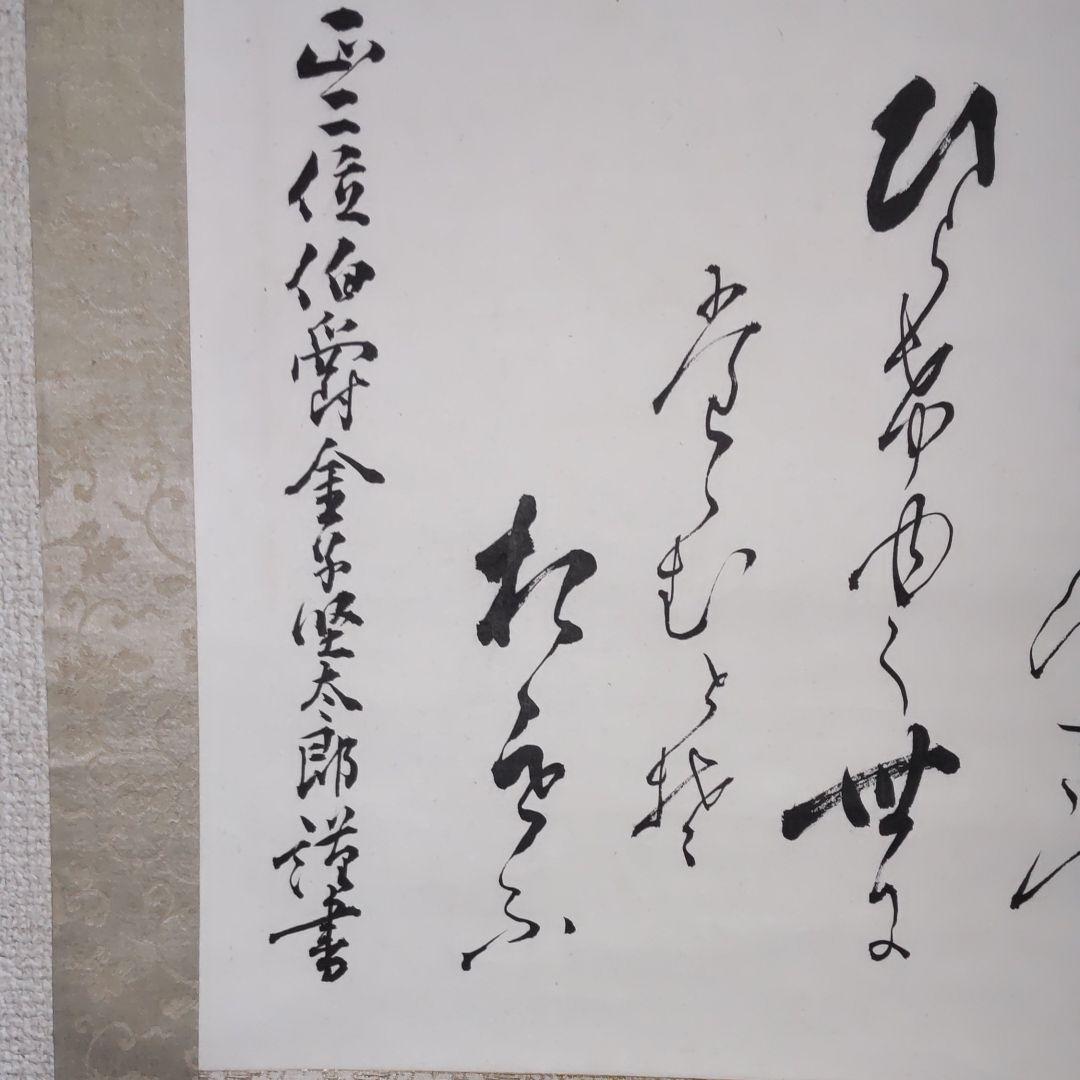 ひらけゆく世に
たゝむとそ
おもふ
正二位伯爵金子堅太郎謹書